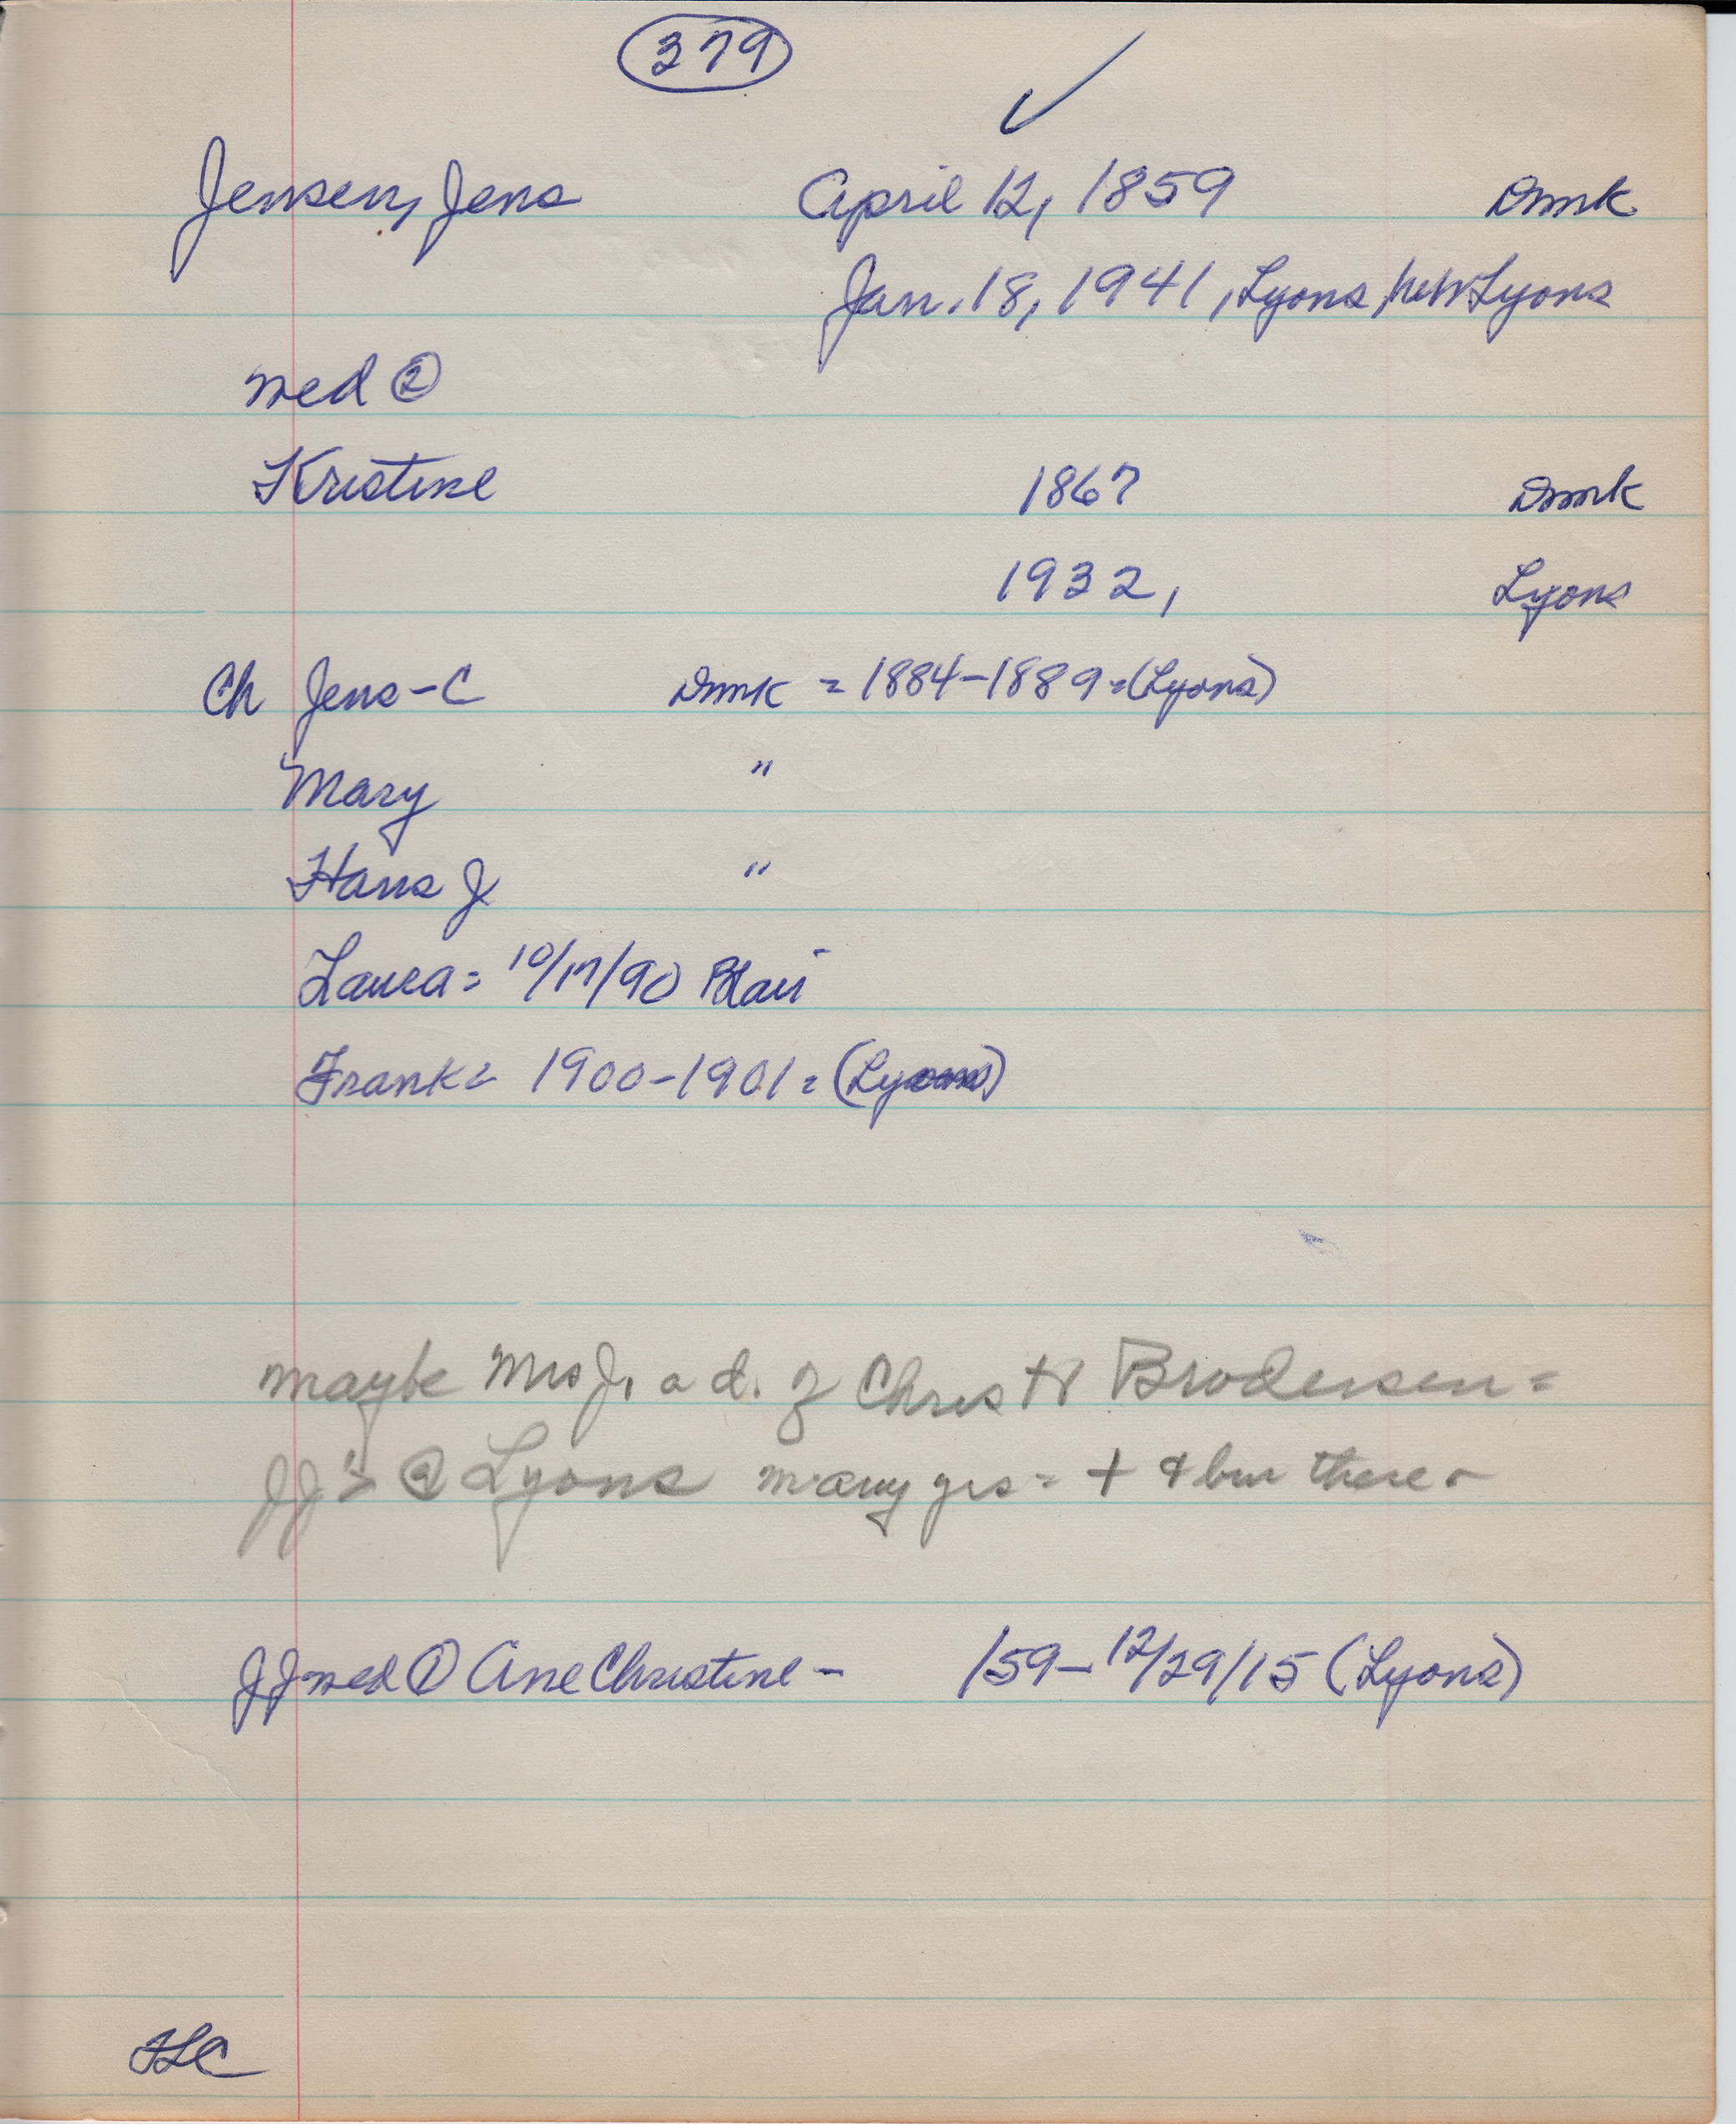 379
✓
Jensen, Jens April 12, 1859 Dnmk
Jan. 18, 1941, Lyons, Lyons
med ②
Kristine 1867 Dnmk
1932, Lyons
Ch Jens-C Dnmk = 1884-1889=(Lyons)
Mary "
Hans J "
Laura= 10/17/90 Blair
Frank= 1900-1901=(Lyons)
maybe Mrs J, a d. of Chris H Brodersen=
JJ's @ Lyons many yrs= + & bur there-
JJ med ① Ane Christine - /59-12/29/15 (Lyons)